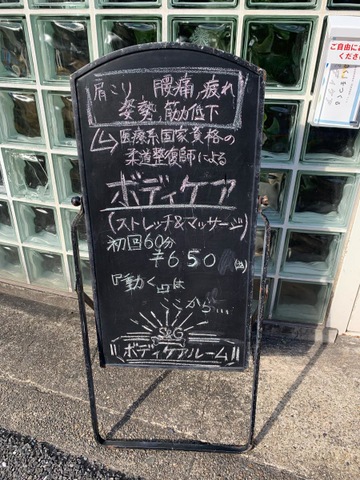 肩こり 腰痛 疲れ
姿勢 筋力低下
医療系国家資格の
柔道整復師による
ボディケア
(ストレッチ&マッサージ)
初回60分
¥650
『動く』は
ここから...
S&G
ボディケアルーム
ご自由に
ください